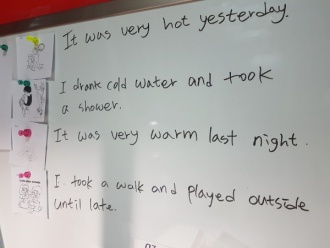 It was very hot yesterday.
I drank cold water and took
a shower.
It was very warm last night.
I took a walk and played outside
until late.